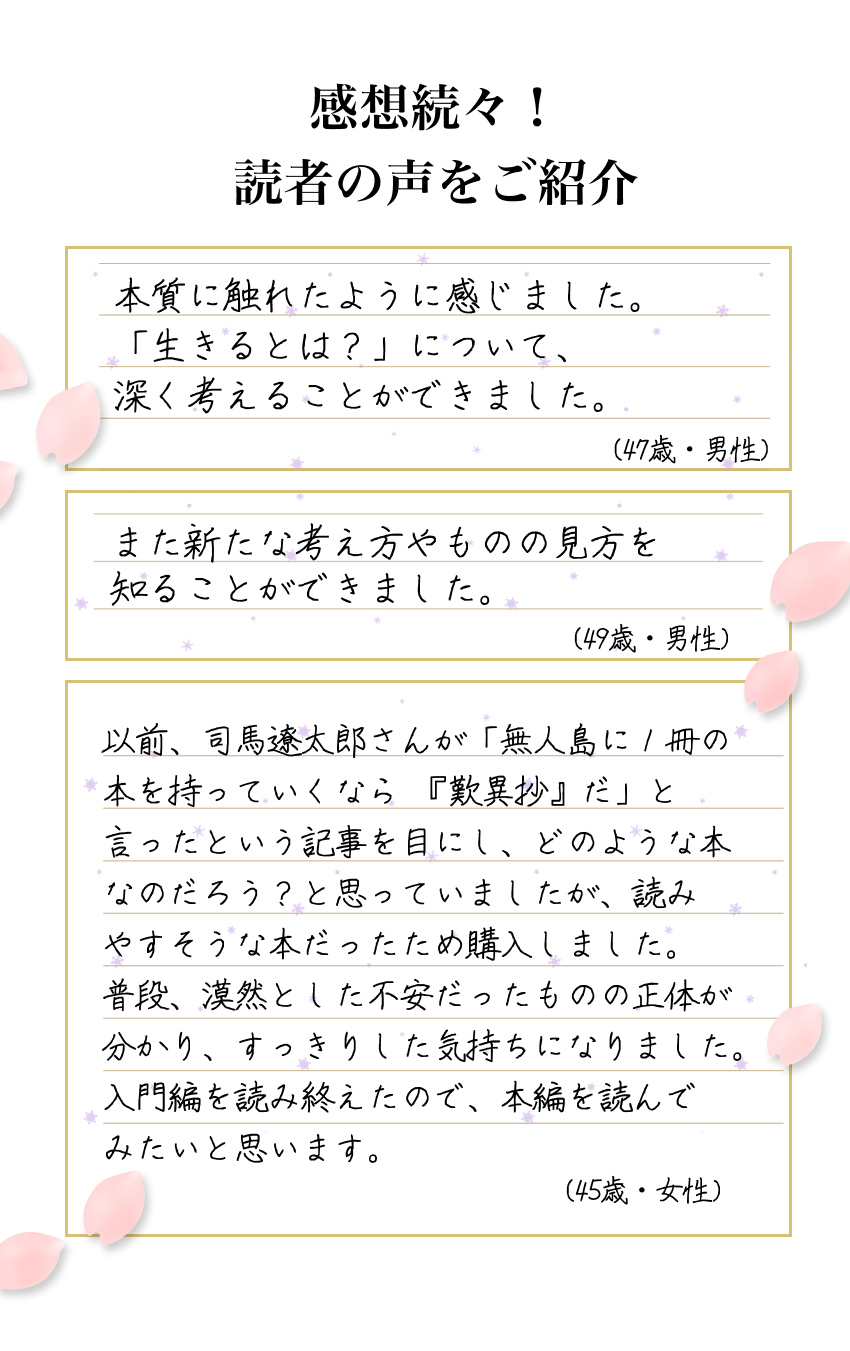 感想続々！
読者の声をご紹介
本質に触れたように感じました。
「生きるとは？」について、
深く考えることができました。
(47歳・男性)
また新たな考え方やものの見方を
知ることができました。
(49歳・男性)
以前、司馬遼太郎さんが「無人島に1冊の
本を持っていくなら『歎異抄』だ」と
言ったという記事を目にし、どのような本
なのだろう？と思っていましたが、読み
やすそうな本だったため購入しました。
普段、漠然とした不安だったものの正体が
分かり、すっきりした気持ちになりました。
入門編を読み終えたので、本編を読んで
みたいと思います。
(45歳・女性)